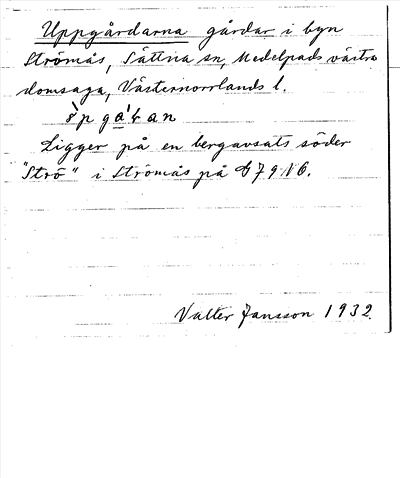 Uppgårdarna gårdar i byn
Strömås, Sättna sn, Medelpads västra
domsaga, Västernorrlands l.
Ligger på en bergavsats söder
"Strö" i Strömås på
Valter Jansson 1932.